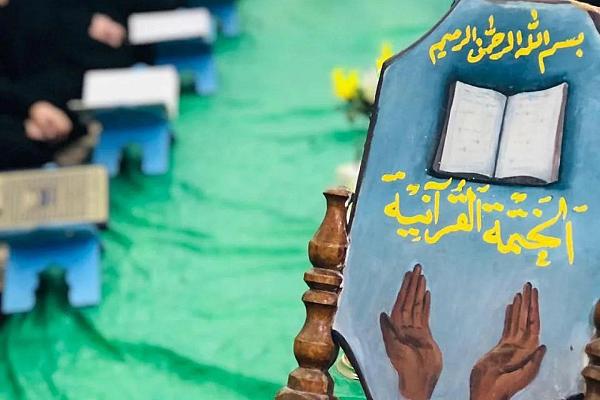 بسم الله الرحمن الرحيم
الختمة القرآنية